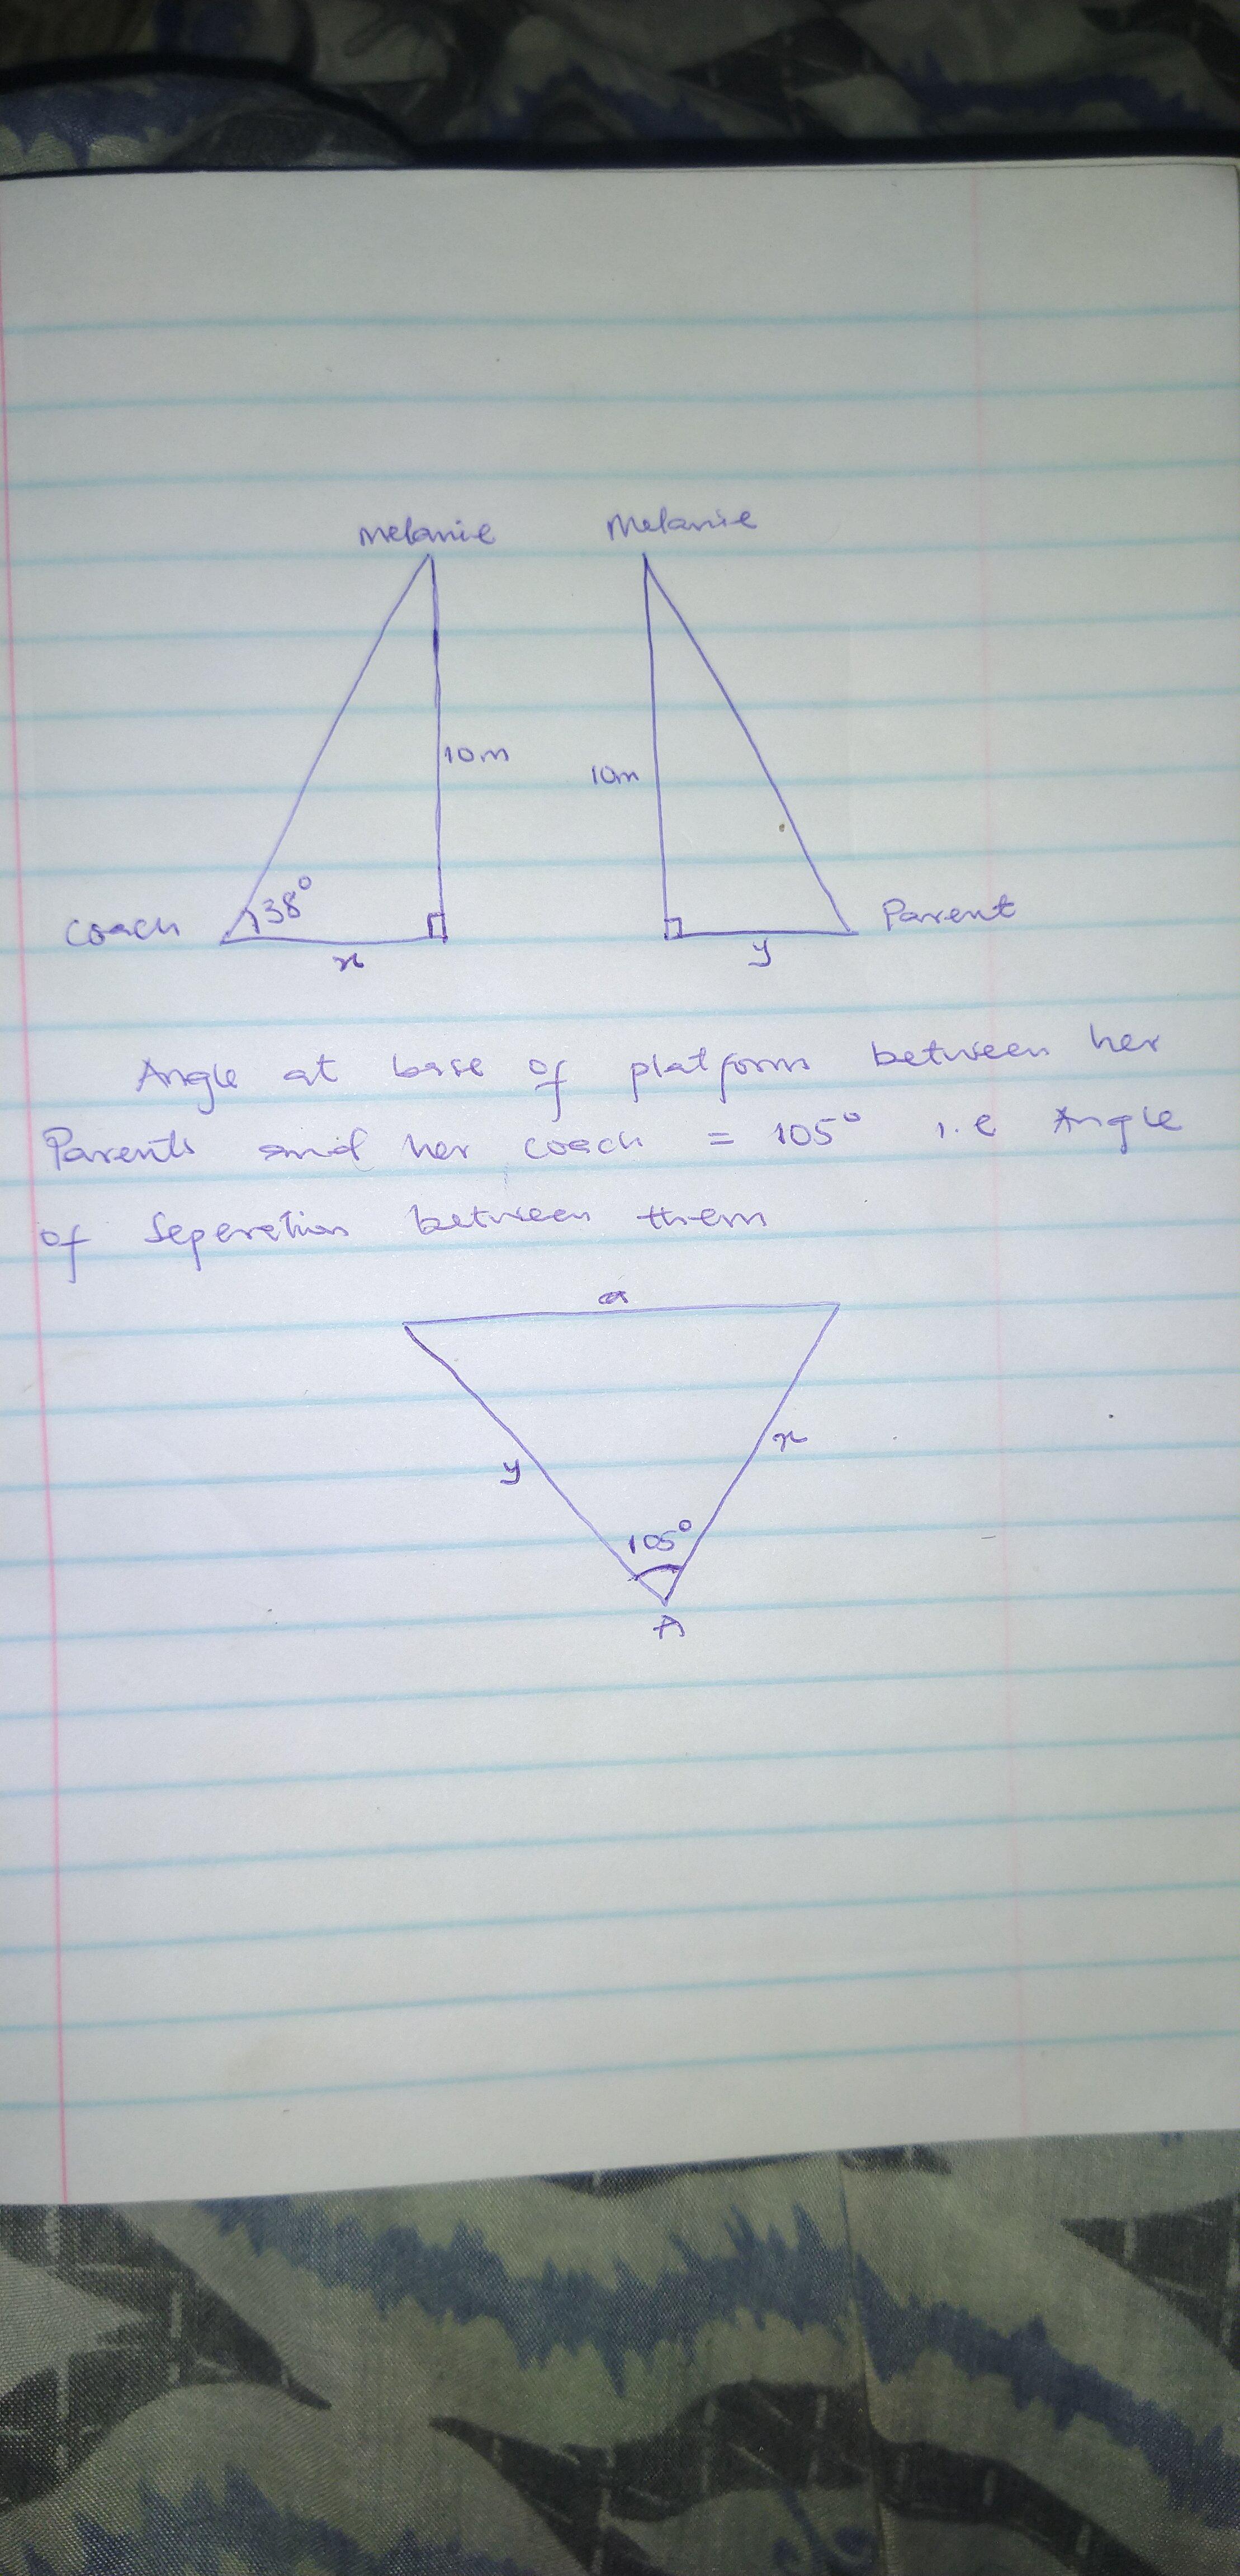 Melanie Melanie
10m 10m
38°
Coach Parent
x y
Angle at base of platform between her
Parents and her coach = 105° i.e Angle
of Seperation between them
a
y x
105°
A